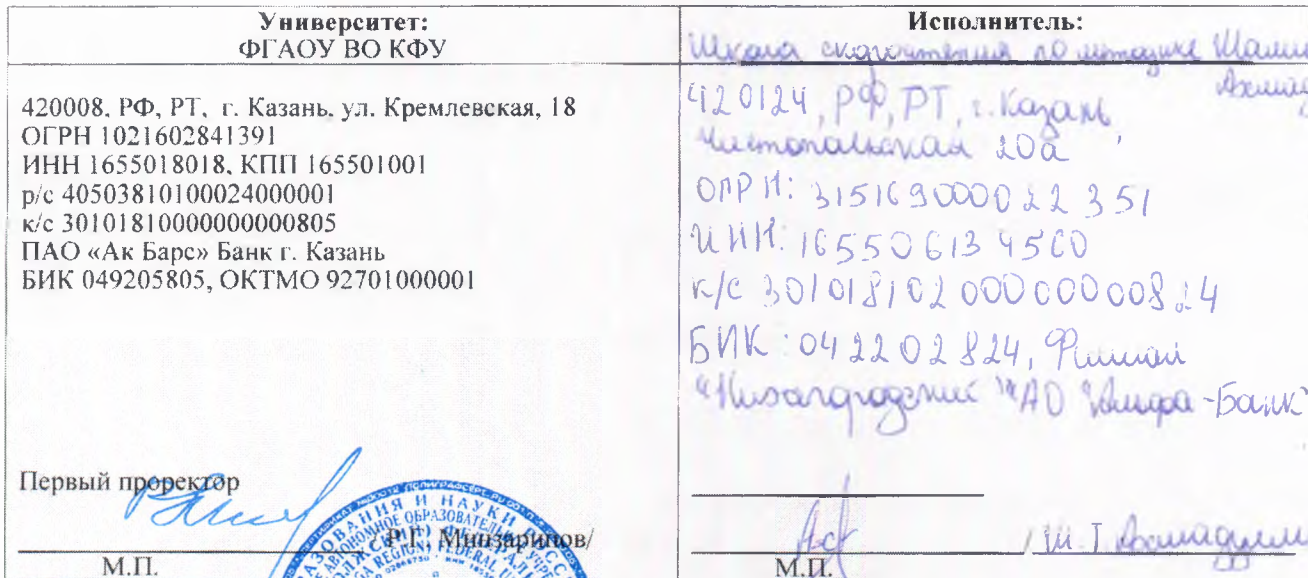 Университет:
ФГАОУ ВО КФУ
420008, РФ, РТ, г. Казань, ул. Кремлевская, 18
ОГРН 1021602841391
ИНН 1655018018, КПП 165501001
р/с 40503810100024000001
к/с 30101810000000000805
ПАО «Ак Барс» Банк г. Казань
БИК 049205805, ОКТМО 92701000001
Первый проректор
Р.Г. Минзарипов/
М.П.
Исполнитель:
Школа скорочтения по методике Шамиля
420124, РФ, РТ, г. Казань,
Чистопольская 20а
ОГРН: 315169000022351
ИНН: 165506134560
к/с 30101810200000000824
БИК: 042202824, Филиал
"Нижегородский" АО "Альфа-Банк"
/ Ш.Т.
М.П.